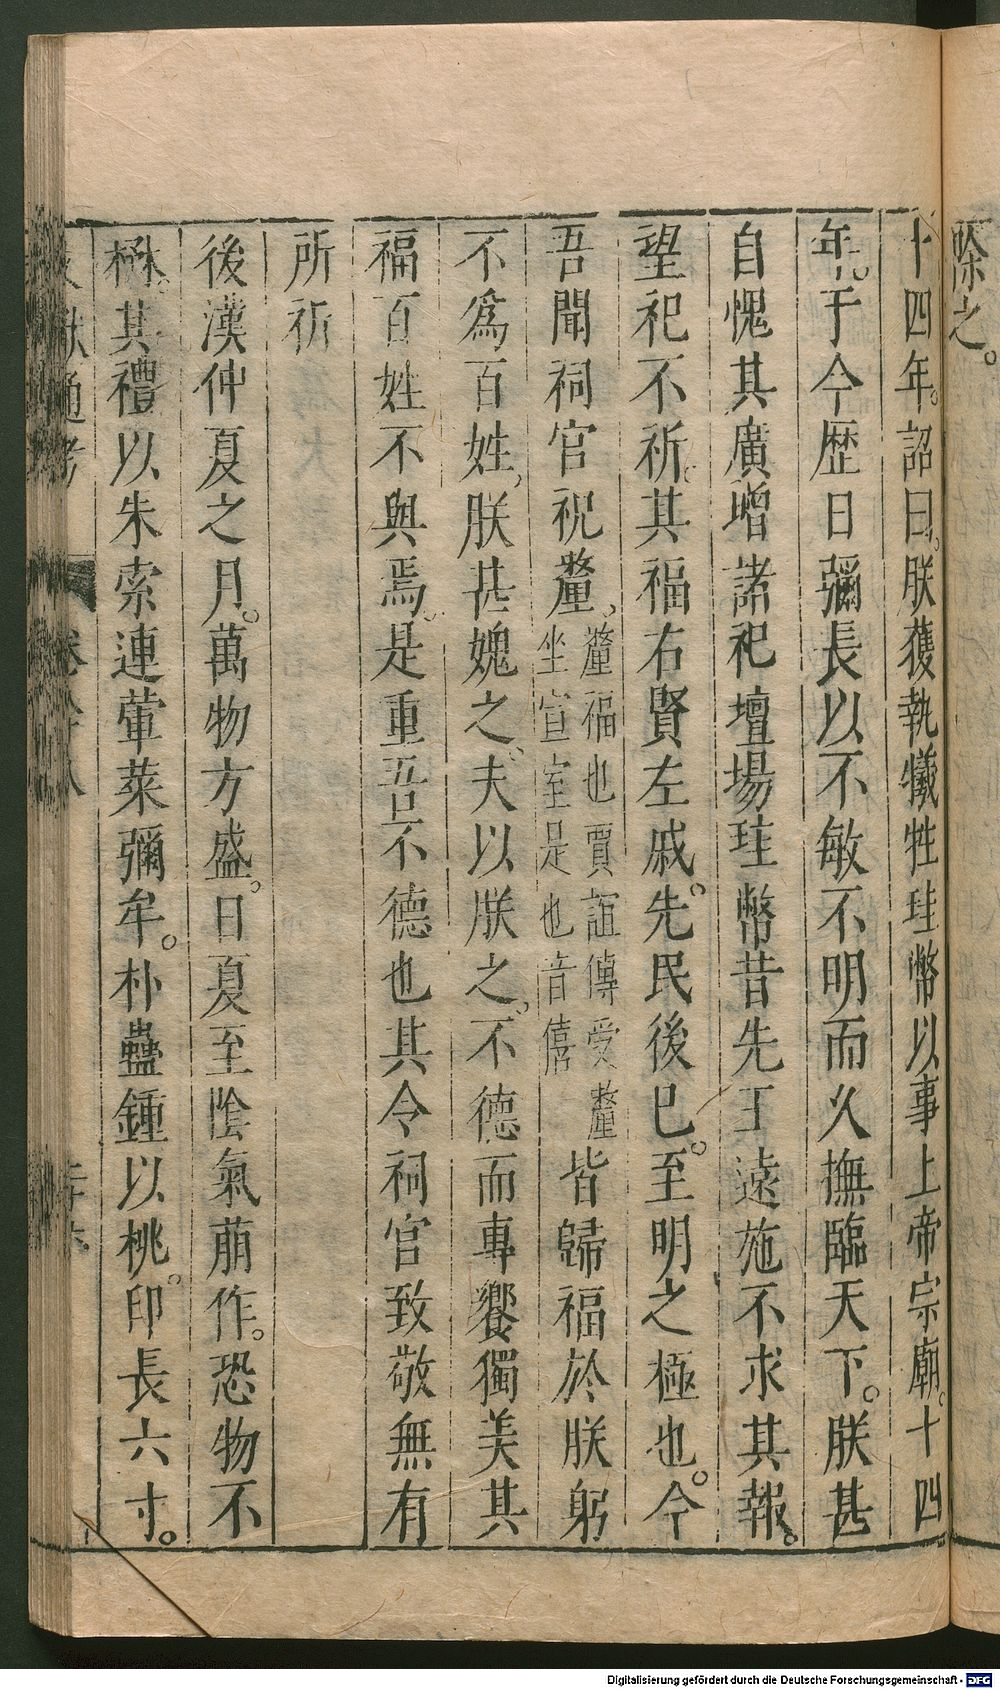 除之。
十四年。詔曰。朕獲執犧牲珪幣以事上帝宗廟。十四
年。于今歷日彌長以不敏不明而久撫臨天下。朕甚
自愧其廣增諸祀壇場珪幣昔先王遠施不求其報。
望祀不祈。其福右賢左戚。先民後已。至明之極也。今
吾聞祠官祝釐。釐福也賈誼傳受釐坐宣室是也音僖皆歸福於朕躬
不爲百姓。朕甚媿之。夫以朕之。不德而專饗獨美其
福百姓不與焉。是重吾不德也其令祠官致敬無有
所祈
後漢仲夏之月。萬物方盛。日夏至陰氣萠作。恐物不
楙。其禮以朱索連葷菜彌牟。朴蠱鍾以桃。印長六寸。
文獻通考 卷八十八